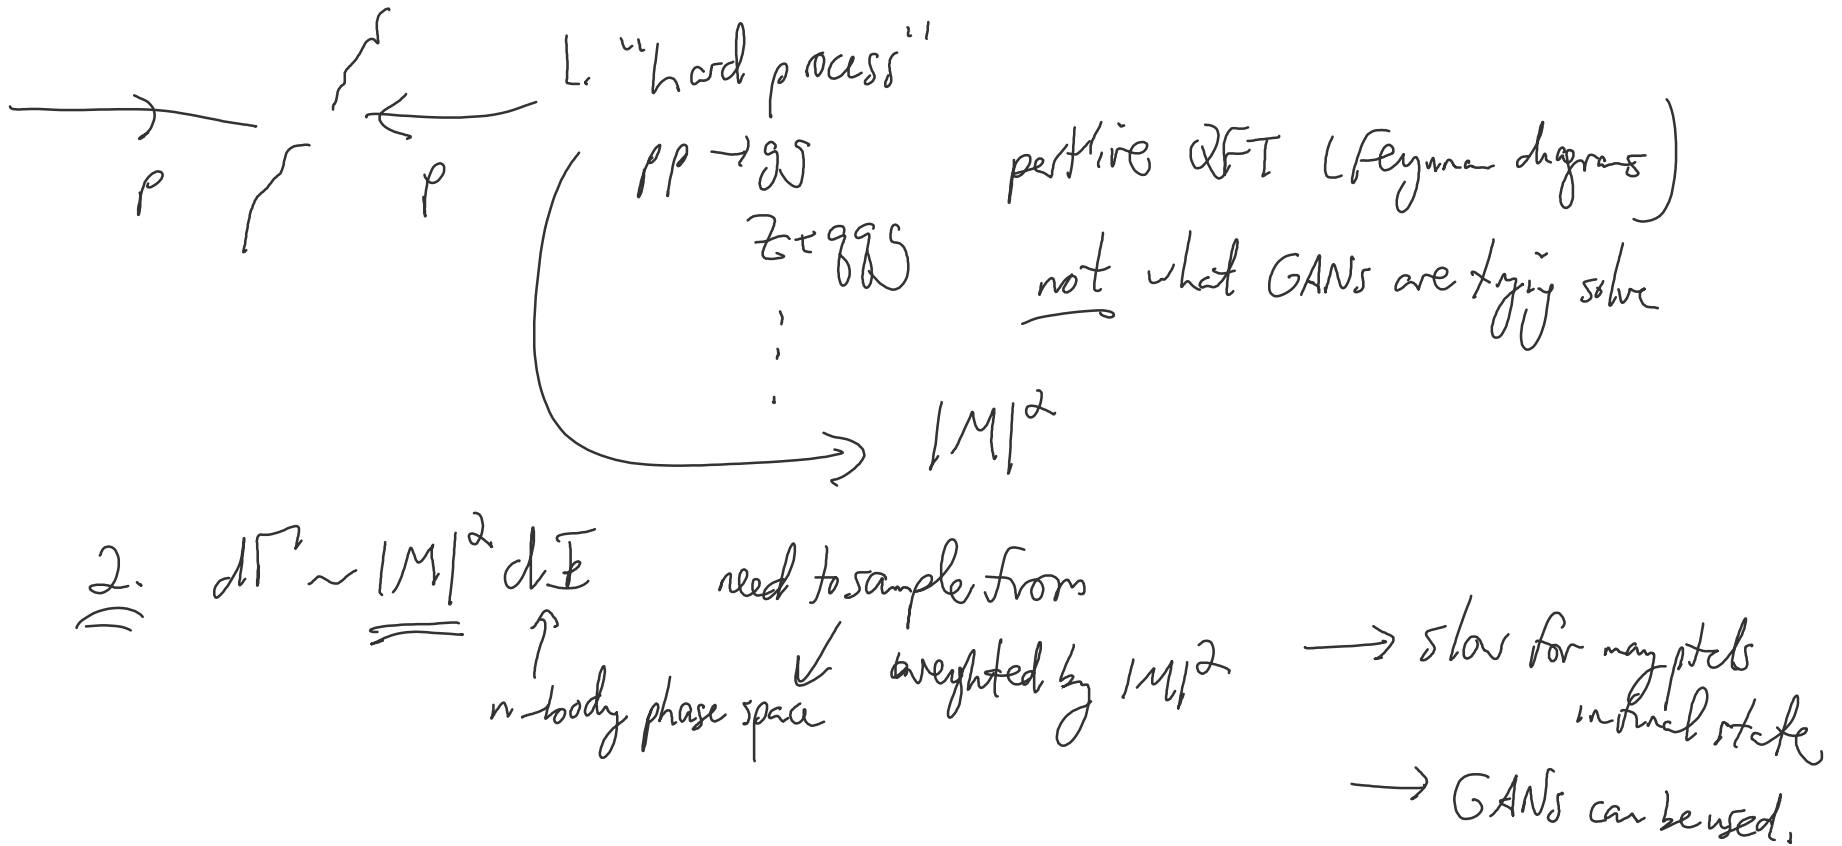 1. "hard process"
p p
pp → gg
pert'ive QFT (Feynman diagrams)
Z + qqg
not what GANs are trying solve
|M|²
2. dΓ ~ |M|² dΦ
need to sample from
n-body phase space
weighted by |M|²
→ slow for many ptcls
in final state
→ GANs can be used.